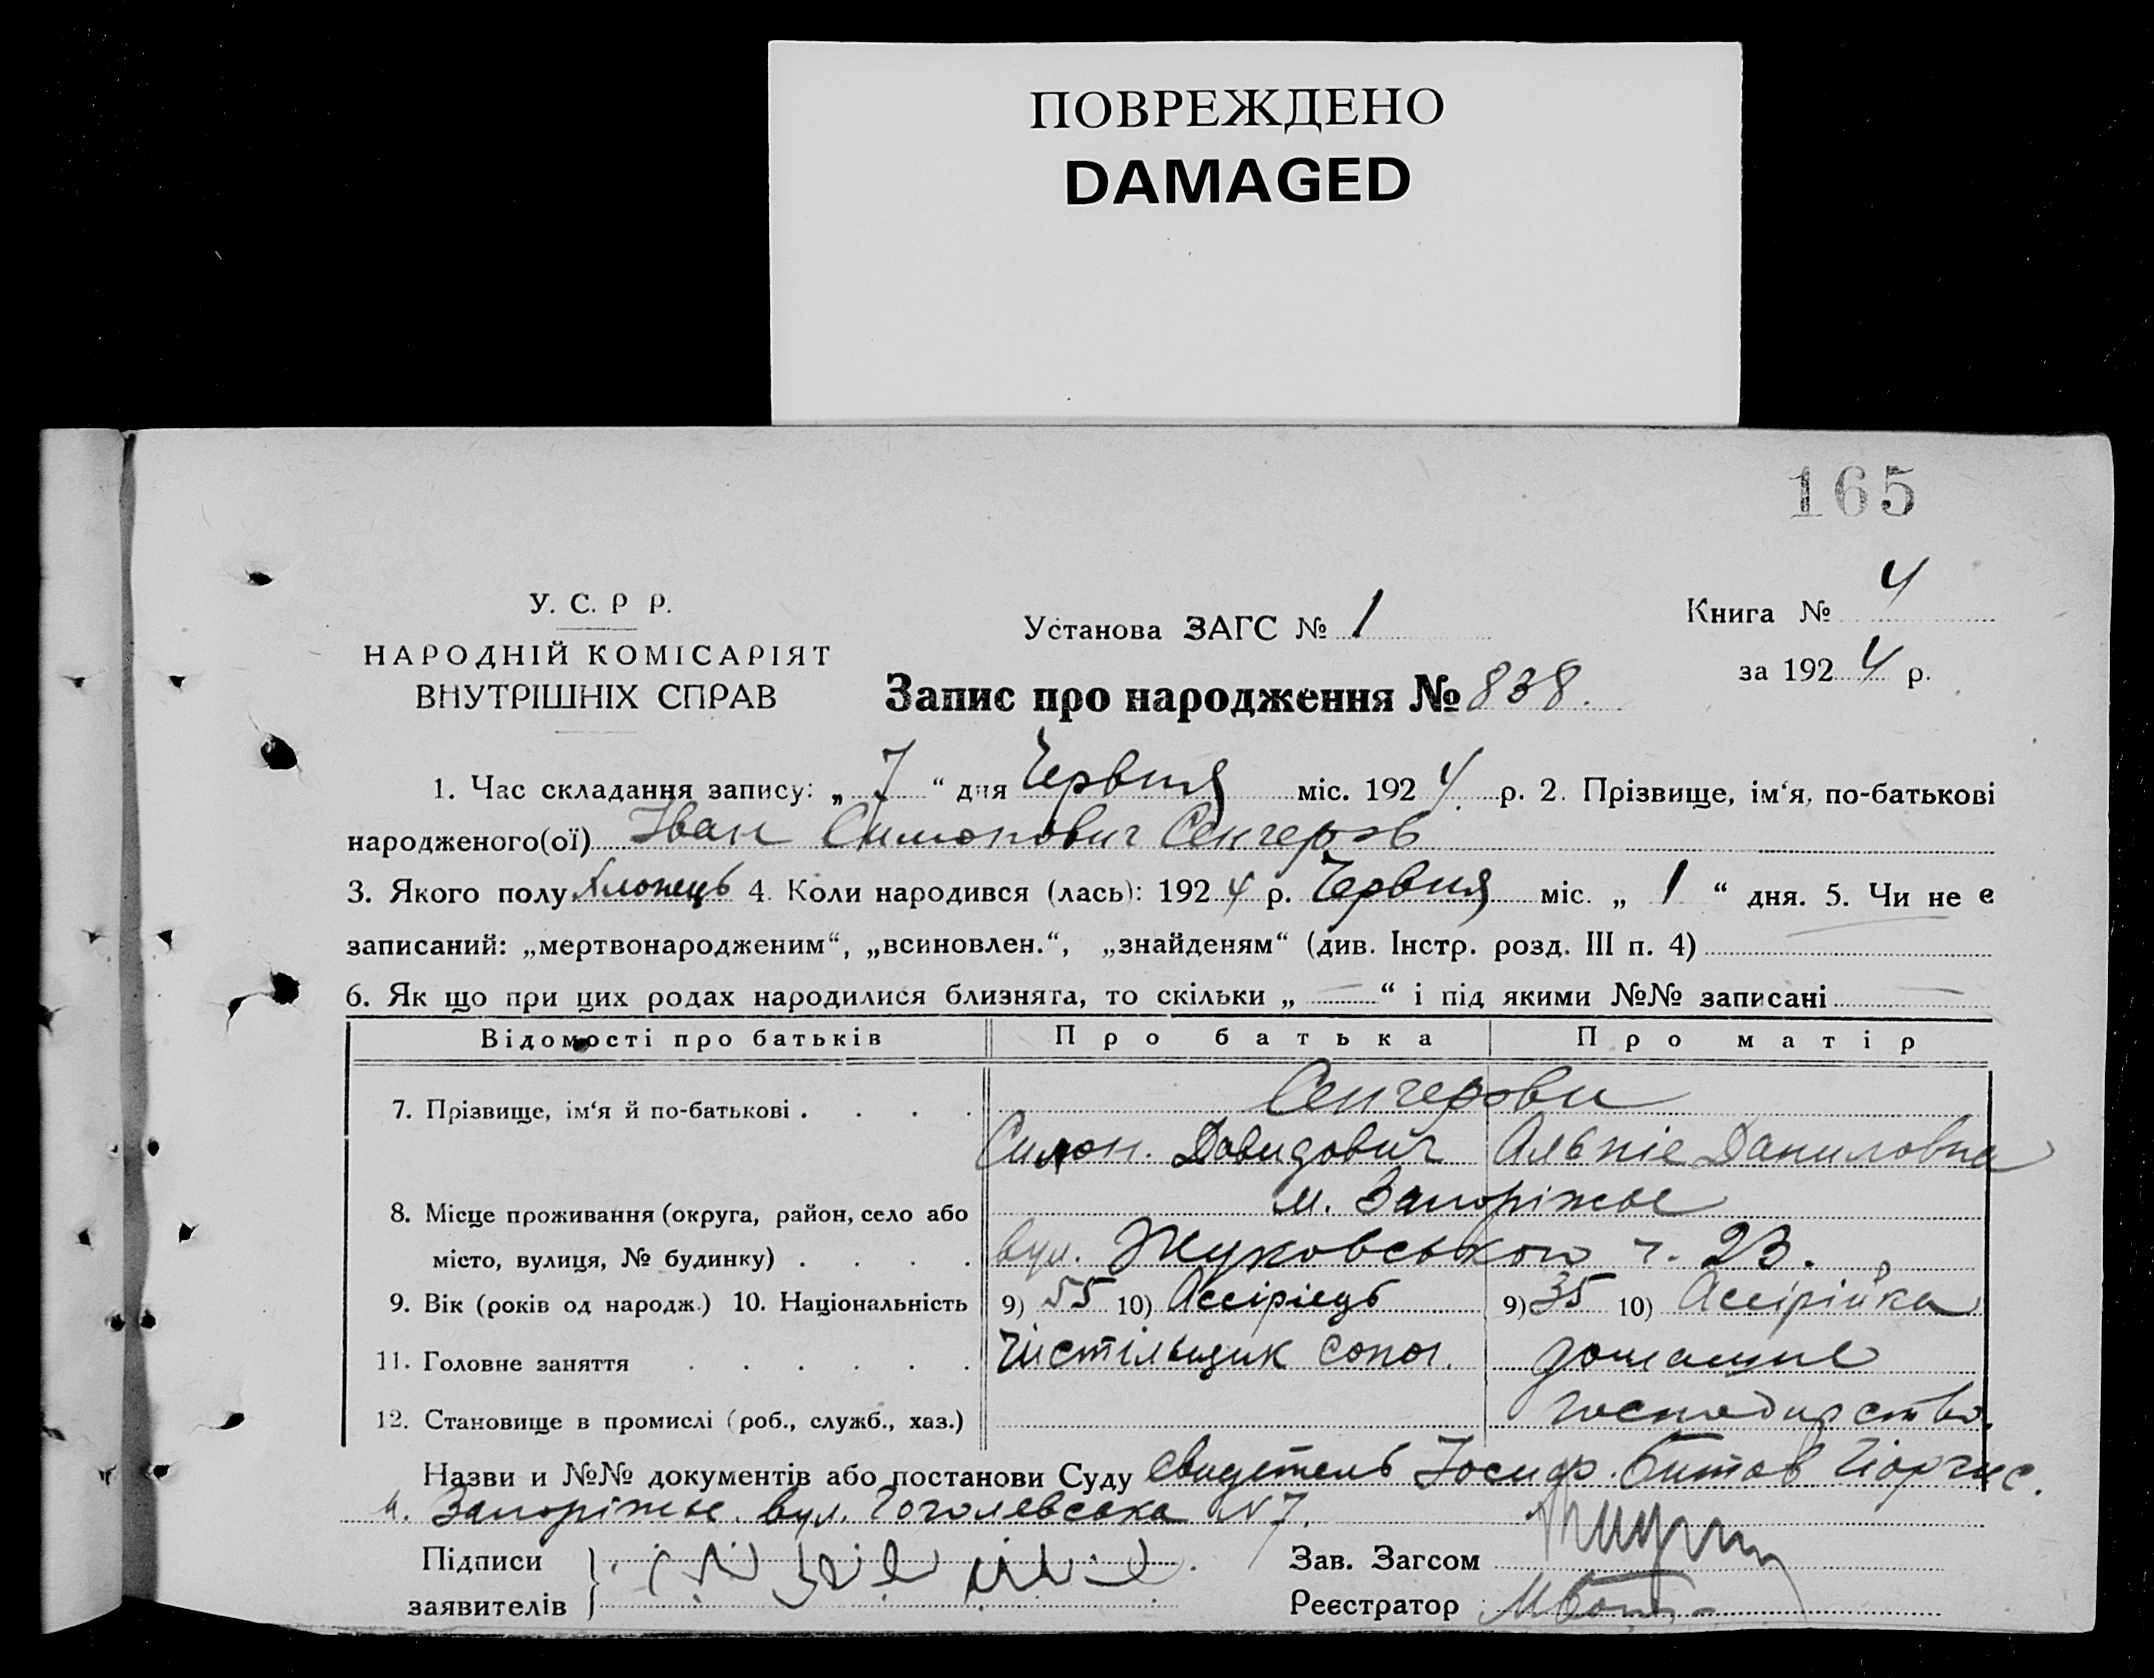 ПОВРЕЖДЕНО
DAMAGED
165
У. С. Р Р.
НАРОДНІЙ КОМІСАРІЯТ
ВНУТРІШНІХ СПРАВ
Установа ЗАГС № 1
Книга № 4
за 1924 р.
Запис про народження № 838.
1. Час складання запису: „ 7 “ дня Червня міс. 1924 р. 2. Прізвище, ім‘я, по-батькові
народженого(ої) Іван Симонович Сенгеров
3. Якого полу Хлопець 4. Коли народився (лась): 1924 р. Червня міс. „ 1 “ дня. 5. Чи не є
записаний: „мертвонародженим“, „всиновлен.“, „знайденям“ (див. Інстр. розд. III п. 4)
6. Як що при цих родах народилися близнята, то скільки „ — “ і під якими №№ записані —
Відомості про батьків Про батька Про матір
Сенгерови
7. Прізвище, ім‘я й по-батькові . . . .
Симон. Давидович Альніе Даниловна
м. Запоріжье
8. Місце проживання (округа, район, село або
місто, вулиця, № будинку) . . . . вул. Жуковського ч. 23.
9. Вік (років од народж.) 10. Національність 9) 55 10) Ассірієць 9) 35 10) Ассірійка
11. Головне заняття . . . . . . Чистільщик сапог. домашнє
12. Становище в промислі (роб., служб., хаз.) господарство.
Назви и №№ документів або постанови Суду Свидетель Іосиф. Битов Гіоргис.
м. Запоріжье. вул. Гоголевська N 7.
Підписи
заявителів
Зав. Загсом
Реєстратор